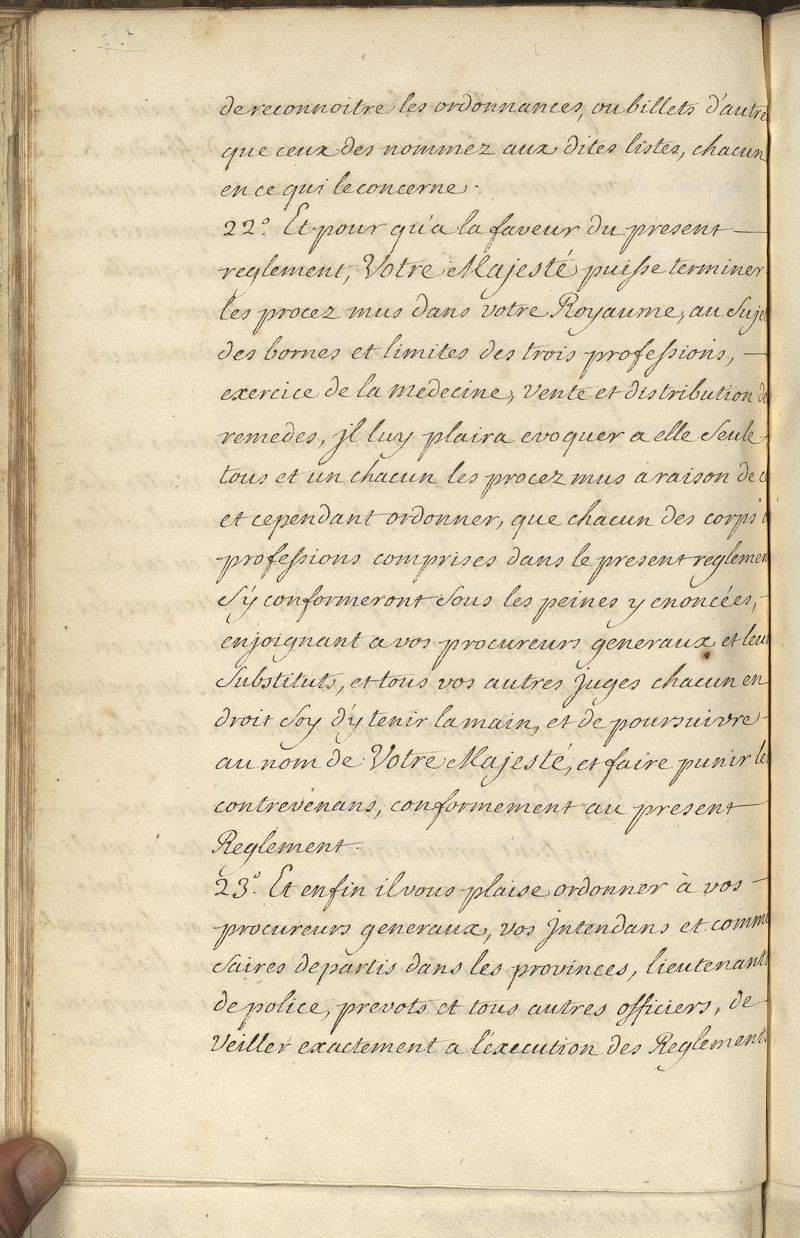 de reconnoitre les ordonnances, ou billets d'autre
que ceux des nommez aux dites listes, chacun
en ce qui le concerne.
22.° Et pour qu'a la faveur du present
reglement, Votre Majesté puisse terminer
les procez mus dans votre Royaume, au Suje
des bornes et limites des trois professions,
exercice de la medecine, vente et distribution de
remedes, jl luy plaira evoquer a elle Seule
tous et un chacun les procez mus a raison de c
et cependant ordonner, que chacun des corps
professions comprises dans le present reglemen
s'y conformeront sous les peines y enoncées,
enjoignant a vos procureurs generaux et leur
Substituts, et tous vos autres juges chacun en
droit soy d'y tenir la main, et de poursuivre
au nom de Votre Majesté, et faire punir le
contrevenans, conformement au present
Reglement.
23.° Et enfin il vous plaise ordonner à vos
procureurs generaux, vos jntendans et commi
saires departis dans les provinces, lieutenants
de police, prevots et tous autres officiers, de
veiller exactement a l'execution des Reglements